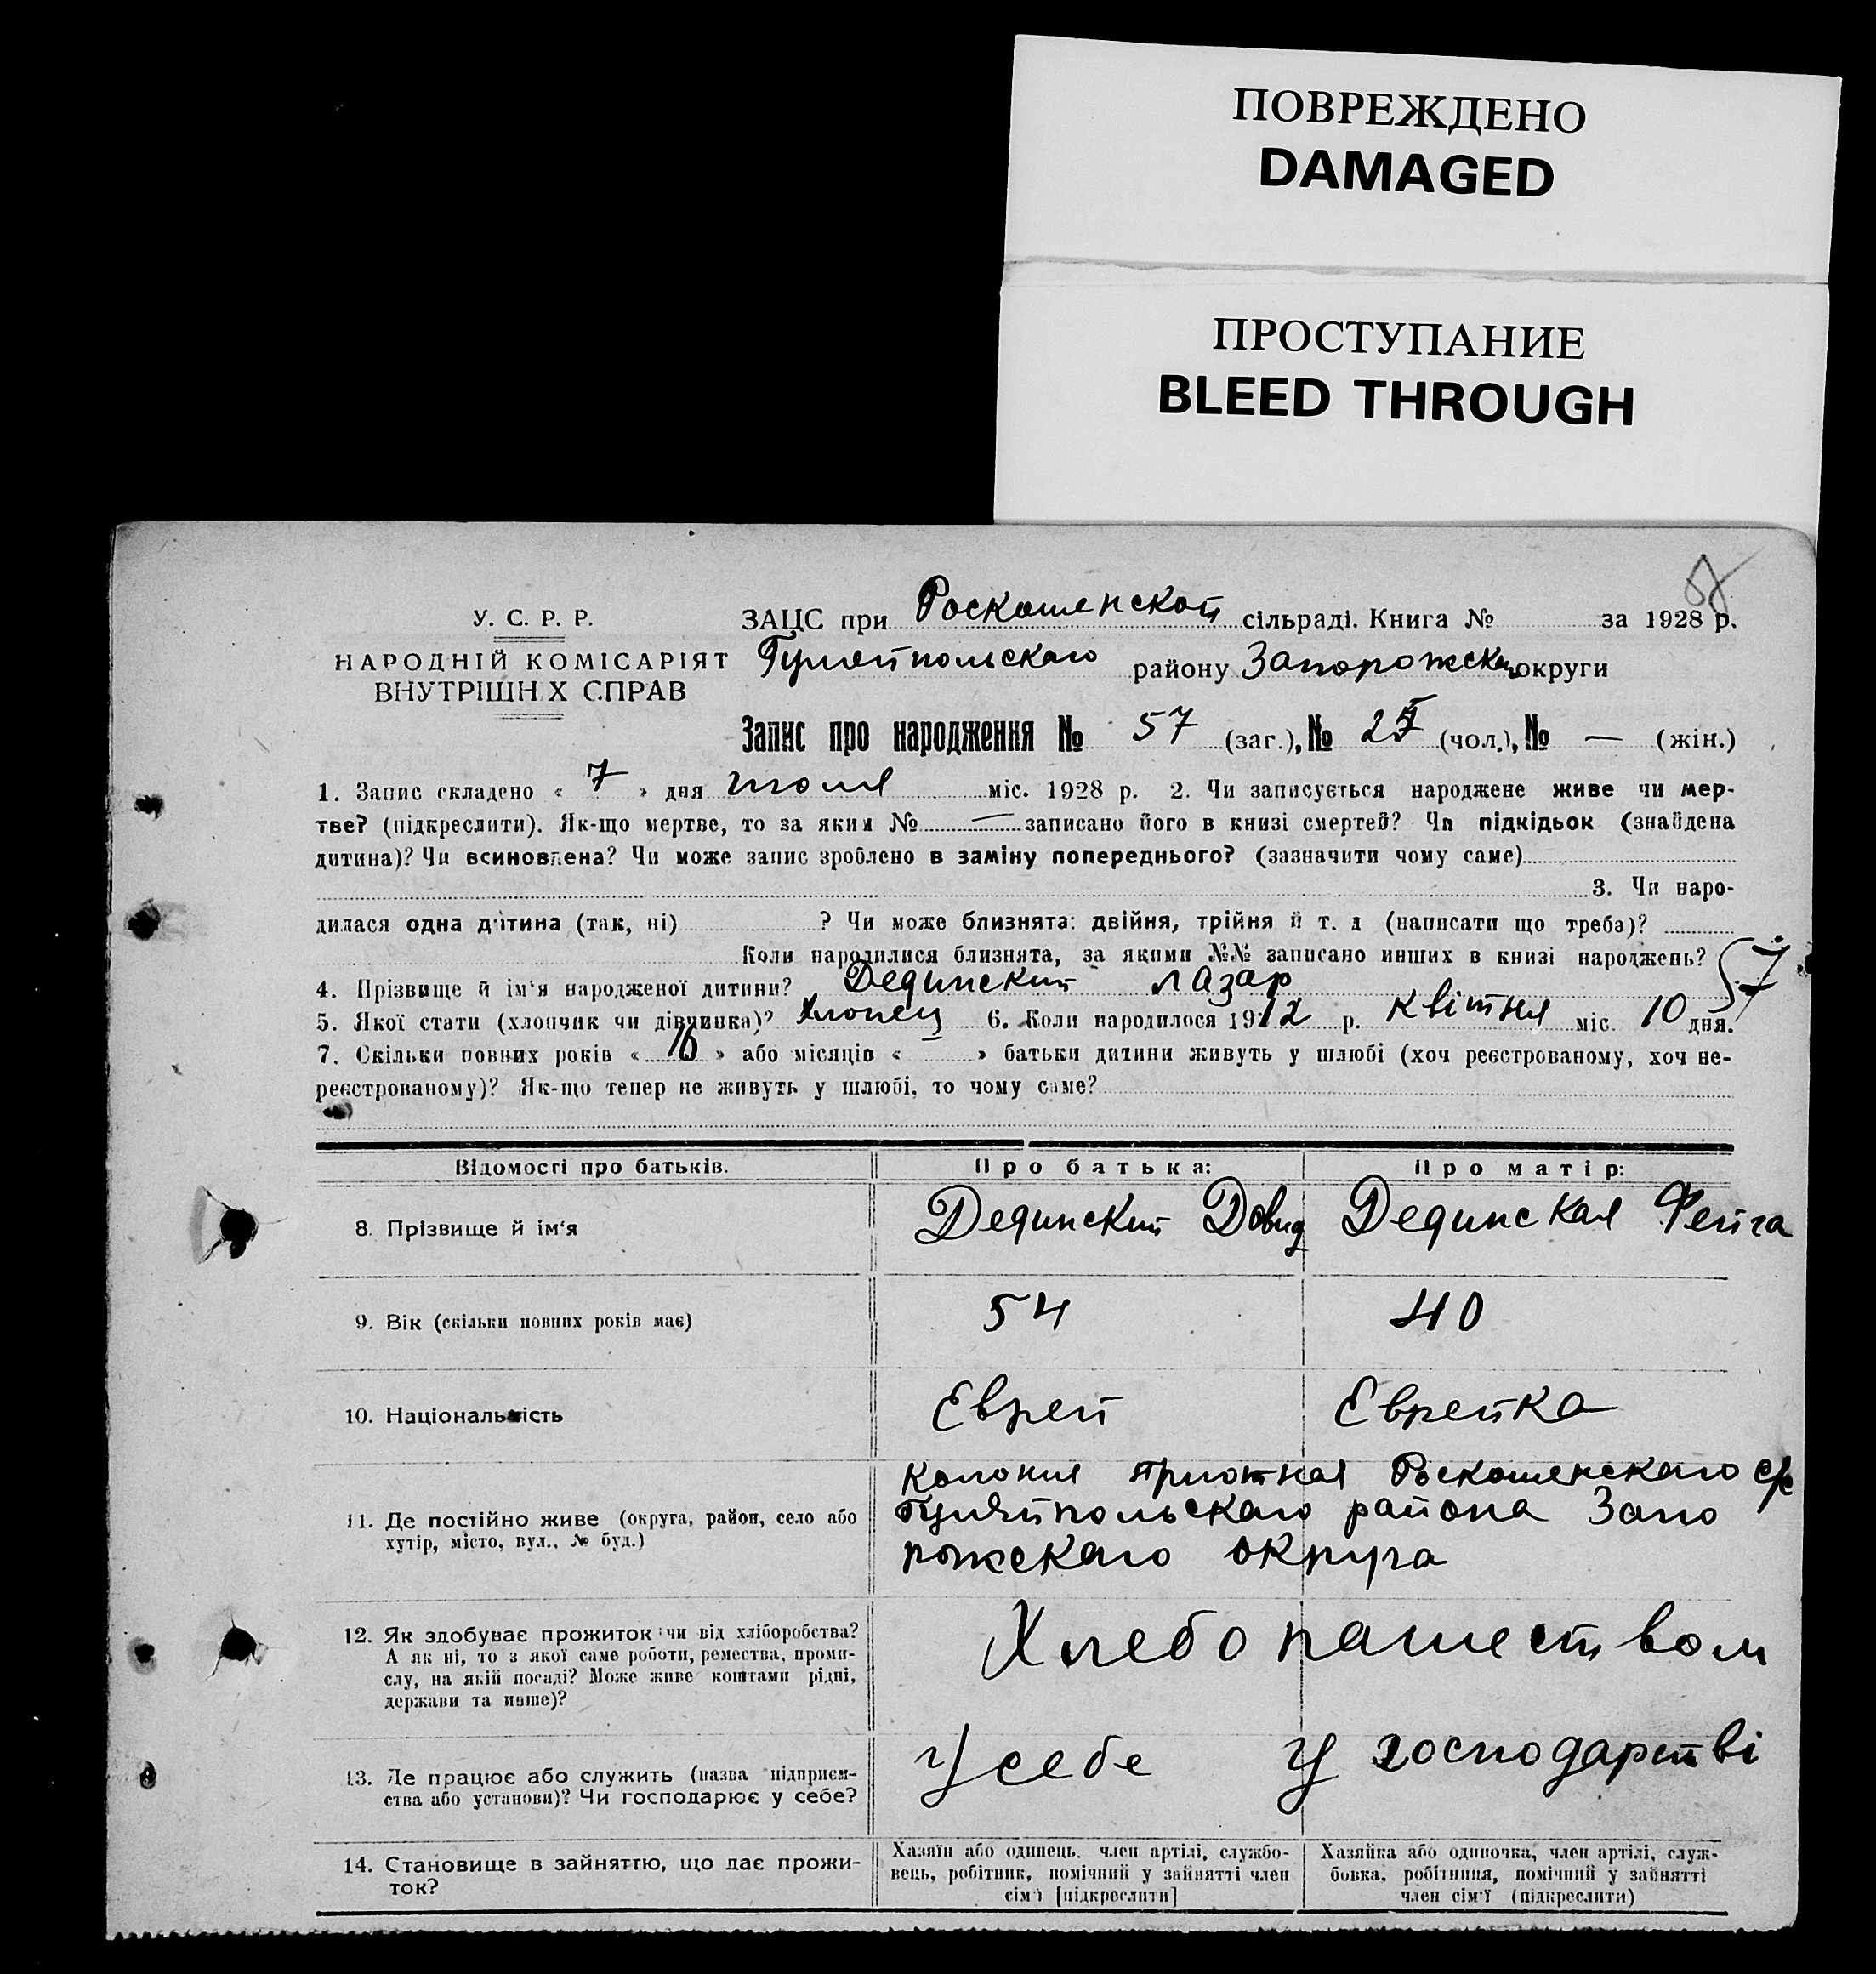 ПОВРЕЖДЕНО
DAMAGED
ПРОСТУПАНИЕ
BLEED THROUGH
У. С. Р. Р.
НАРОДНІЙ КОМІСАРІЯТ
ВНУТРІШН Х СПРАВ
ЗАЦС при Роскошенской сільраді. Книга № за 1928 р.
Гуляйпольского району Запорожской округи
Запис про народження № 57 (заг.), № 25 (чол.), № — (жін.)
1. Запис складено « 7 » дня июля міс. 1928 р. 2. Чи записується народжене живе чи мер-
тве? (підкреслити). Як-що мертве, то за яким № — записано його в книзі смертей? Чи підкідьок (знайдена
дитина)? Чи всиновлена? Чи може запис зроблено в заміну попереднього? (зазначити чому саме)
3. Чи наро-
дилася одна дитина (так, ні) ? Чи може близнята: двійня, трійня й т. д (написати що треба)?
Коли народилися близнята, за якими №№ записано инших в книзі народжень? 57
4. Прізвище й ім'я народженої дитини? Дединский Лазар
5. Якої стати (хлопчик чи дівчинка)? Хлопец 6. Коли народилося 1912 р. квітня міс. 10 дня.
7. Скільки повних років « 16 » або місяців « – » батьки дитини живуть у шлюбі (хоч реєстрованому, хоч не-
реєстрованому)? Як-що тепер не живуть у шлюбі, то чому саме?
Відомості про батьків. Про батька: Про матір:
8. Прізвище й ім'я Дединский Довид Дединская Фейга
9. Вік (скільки повних років має) 54 40
10. Національність Еврей Еврейка
колония Приютная Роскошенского с/с
11. Де постійно живе (округа, район, село або Гуляйпольского района Запо
хутір, місто, вул., № буд.) рожскаго округа
12. Як здобуває прожиток: чи від хліборобства? Хлебопашеством
А як ні, то з якої саме роботи, ремества, проми-
слу, на якій посаді? Може живе коштами рідні,
держави та инше)?
13. Де працює або служить (назва підприєм- У себе У господарстві
ства або установи)? Чи господарює у себе?
14. Становище в зайняттю, що дає прожи-
ток?
Хазяїн або одинець, член артілі, службо-
вець, робітник, помічний у зайнятті член
сім'ї [підкреслити]
Хазяйка або одиночка, член артілі, служ-
бовка, робітниця, помічний у зайнятті
член сім'ї (підкреслити)